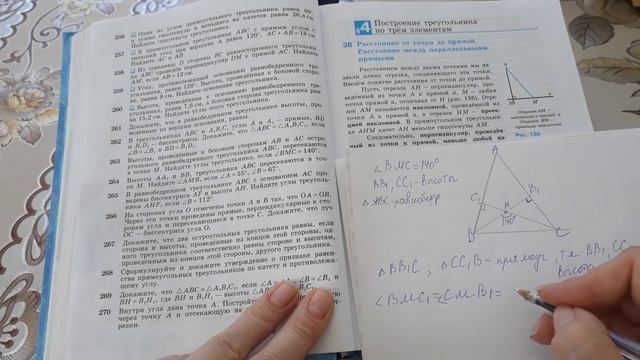 256 Один из углов прямоугольного треугольника равен 60°,
а сумма гипотенузы и меньшего из катетов равна 26,4 см.
Найдите гипотенузу треугольника.
257 В прямоугольном треугольнике ABC с прямым углом C
внешний угол при вершине A равен 120°, AC + AB = 18 см.
Найдите AC и AB.
258 Из середины D стороны BC равностороннего треугольни-
ка ABC проведён перпендикуляр DM к прямой AC. Найдите
AM, если AB = 12 см.
259 Угол, противолежащий основанию равнобедренного
треугольника, равен 120°. Высота, проведённая к боковой сторо-
не, равна 9 см. Найдите основание треугольника.
260 Высота, проведённая к основанию равнобедренного тре-
угольника, равна 7,6 см, а боковая сторона треугольника рав-
на 15,2 см. Найдите углы этого треугольника.
261 Докажите, что в равнобедренном треугольнике высоты, про-
ведённые из вершин основания, равны.
262 В треугольниках ABC и A₁B₁C₁ углы A и A₁ — прямые, BD
и B₁D₁ — биссектрисы. Докажите, что △ABC = △A₁B₁C₁, если
∠B = ∠B₁ и BD = B₁D₁.
263 Высоты, проведённые к боковым сторонам AB и AC остро-
угольного равнобедренного треугольника ABC, пересекаются
в точке M. Найдите углы треугольника, если ∠BMC = 140°.
264 Высоты AA₁ и BB₁ треугольника ABC пересекаются в точ-
ке M. Найдите ∠AMB, если ∠A = 55°, ∠B = 67°.
265 В равнобедренном треугольнике ABC с основанием AC про-
ведены биссектриса AF и высота AH. Найдите углы треуголь-
ника AHF, если ∠B = 112°.
266 На сторонах угла O отмечены точки A и B так, что OA = OB.
Через эти точки проведены прямые, перпендикулярные к сто-
ронам угла и пересекающиеся в точке C. Докажите, что луч
OC — биссектриса угла O.
267 Докажите, что два остроугольных треугольника равны, если
сторона и высоты, проведённые из концов этой стороны, од-
ного треугольника соответственно равны стороне и высотам,
проведённым из концов этой стороны, другого треугольника.
268 Сформулируйте и докажите утверждение о признаке равен-
ства прямоугольных треугольников по катету и противолежа-
щему углу.
269 Докажите, что △ABC = △A₁B₁C₁, если ∠A = ∠A₁, ∠B = ∠B₁ и
BH = B₁H₁, где BH и B₁H₁ — высоты
270 Внутри угла дана точка A. Постройте
через точку A и отсекающую на
резки.
§4 Построение треугольника
по трём элементам
38 Расстояние от точки до прямой.
Расстояние между параллельными
прямыми
Расстоянием между двумя точками мы на-
звали длину отрезка, соединяющего эти точки.
Введём понятие расстояния от точки до прямой.
Пусть отрезок AH — перпендикуляр, про-
ведённый из точки A к прямой a, M — любая
точка прямой a, отличная от H (рис. 136). Отре-
зок AM называется наклонной, проведённой
из точки A к прямой a, а отрезок HM — прое-
кцией наклонной. В прямоугольном треуголь-
нике AHM катет AH меньше гипотенузы AM.
Следовательно, перпендикуляр, проведён-
ный из точки к прямой, меньше любой
Рис. 136
∠BMC=140°
BB₁, CC₁-высоты
△ABC-равнобедр
A
C₁
B₁
M
140°
B
C
△BB₁C, △CC₁B-прямоуг, т.е BB₁, CC₁
высоты
∠BMC₁=∠CMB₁=